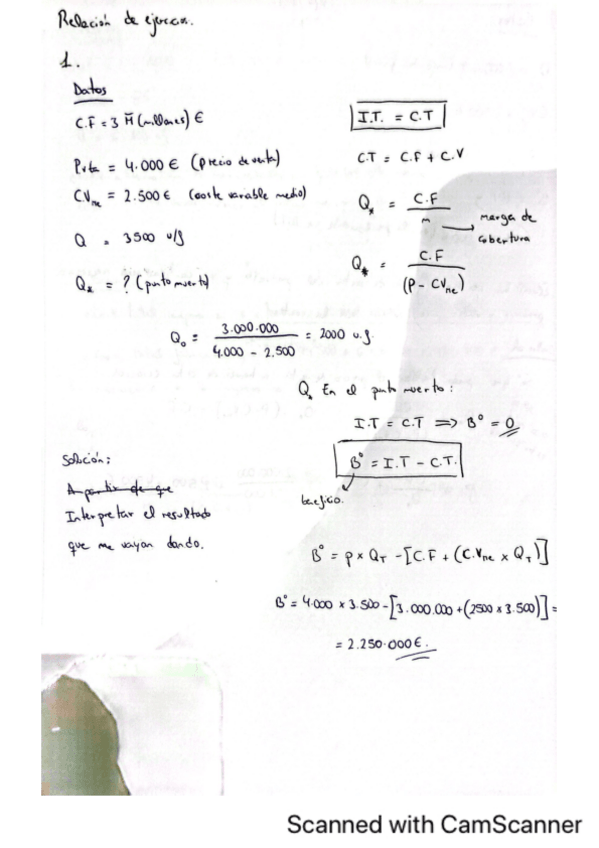 Relación de ejercicios.
1.
Datos
C.F = 3 M (millones) €
Pvta = 4.000 € (precio de venta)
CVme = 2.500 € (coste variable medio)
Q = 3500 u/f
Qx = ? (punto muerto)
I.T. = C.T
C.T = C.F + C.V
Qx = C.F / m → margen de cobertura
Qx = C.F / (P - CVme)
Qo = 3.000.000 / 4.000 - 2.500 = 2000 u.f.
Qx En el punto muerto:
I.T = C.T ⇒ Bº = 0
Bº = I.T - C.T.
beneficio.
Solución:
A partir de que
Interpretar el resultado
que me vayan dando.
Bº = p x QT - [C.F + (C.Vme x QT)]
Bº = 4.000 x 3.500 - [3.000.000 + (2500 x 3.500)] =
= 2.250.000 €.
Scanned with CamScanner